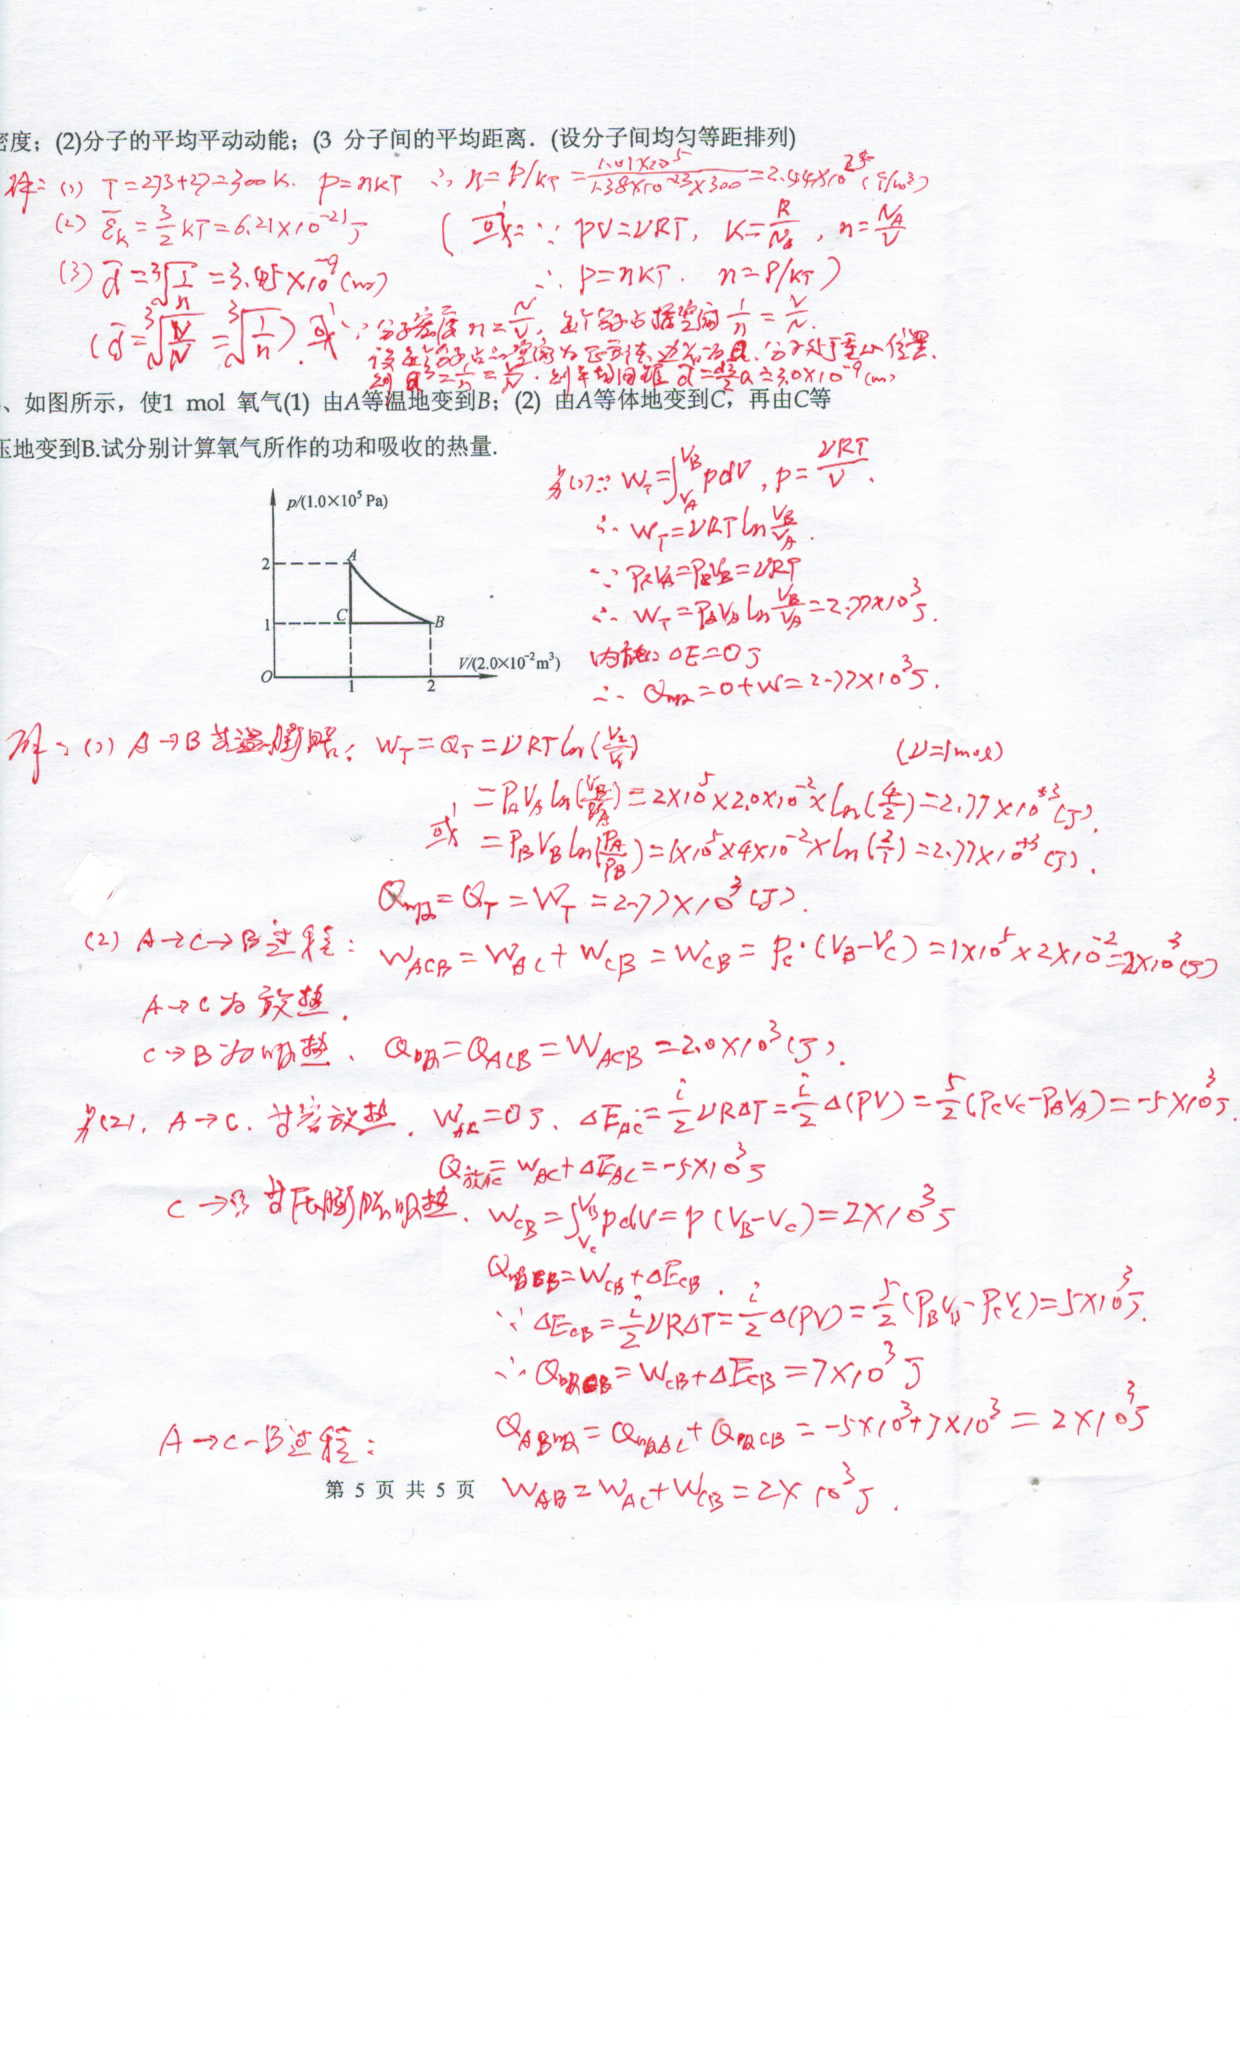 密度；(2)分子的平均平动动能；(3 分子间的平均距离．(设分子间均匀等距排列)
解：(1) T=273+27=300K. p=nkT ∴ n=P/kT=1.01×10⁵/1.38×10⁻²³×300=2.44×10²⁵(个/m³)
(2) ε̄k=3/2 kT=6.21×10⁻²¹J (或∵ pV=νRT, K=R/NA, n=NA/V
(3) d̄=³√(1/n)=3.45×10⁻⁹(m) ∴ p=nkT. n=P/kT)
(d̄=³√(V/N)=³√(1/n)) 或∵分子密度n=N/V, 每个分子占据空间1/n=V/N.
设每个分子占的空间为正方体,边长为a.分子处于重心位置.
则a³=1/n=V/N.
、如图所示，使1 mol 氧气(1) 由A等温地变到B；(2) 由A等体地变到C，再由C等
压地变到B.试分别计算氧气所作的功和吸收的热量.
另(1)∵ W_T=∫_{V_A}^{V_B} pdV, p=νRT/V.
∴ W_T=νRT ln V_B/V_A.
∵ P_A V_A=P_B V_B=νRT
∴ W_T=P_A V_A ln V_B/V_A=2.77×10³J.
内能∵ΔE=0J
∴ Q吸=0+W=2.77×10³J.
p/(1.0×10⁵ Pa)
2 A
1 C B
V/(2.0×10⁻²m³)
O 1 2
解：(1) A→B 等温膨胀： W_T=Q_T=νRT ln(V₂/V₁) (ν=1mol)
=P_A V_A ln(V_B/V_A)=2×10⁵×2.0×10⁻²×ln(4/2)=2.77×10⁺³(J).
或 =P_B V_B ln(P_A/P_B)=1×10⁵×4×10⁻²×ln(2/1)=2.77×10⁺³(J).
Q吸=Q_T=W_T=2.77×10³(J).
(2) A→C→B过程： W_ACB=W_AC+W_CB=W_CB=P_C·(V_B-V_C)=1×10⁵×2×10⁻²=2×10³(J)
A→C为放热.
C→B为吸热. Q吸=Q_ACB=W_ACB=2.0×10³(J).
另(2). A→C.等容放热. W_AC=0J. ΔE_AC=i/2 νRΔT=i/2 Δ(PV)=5/2(P_C V_C-P_A V_A)=-5×10³J.
Q放AC=W_AC+ΔE_AC=-5×10³J
C→B 等压膨胀吸热. W_CB=∫_{V_C}^{V_B} pdV=p(V_B-V_C)=2×10³J
Q吸CB=W_CB+ΔE_CB.
∵ ΔE_CB=i/2 νRΔT=i/2 Δ(PV)=5/2(P_B V_B-P_C V_C)=5×10³J.
∴ Q吸CB=W_CB+ΔE_CB=7×10³J
A→C-B过程： Q_AB吸=Q吸AC+Q吸CB=-5×10³+7×10³=2×10³J
第 5 页 共 5 页 W_AB=W_AC+W_CB=2×10³J.